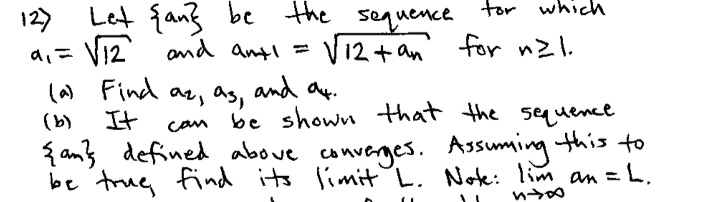 12) Let {an} be the sequence for which
a₁ = √12 and an+1 = √12 + an for n≥1.
(a) Find a₂, a₃, and a₄.
(b) It can be shown that the sequence
{an} defined above converges. Assuming this to
be true, find its limit L. Note: lim an = L.
n→∞